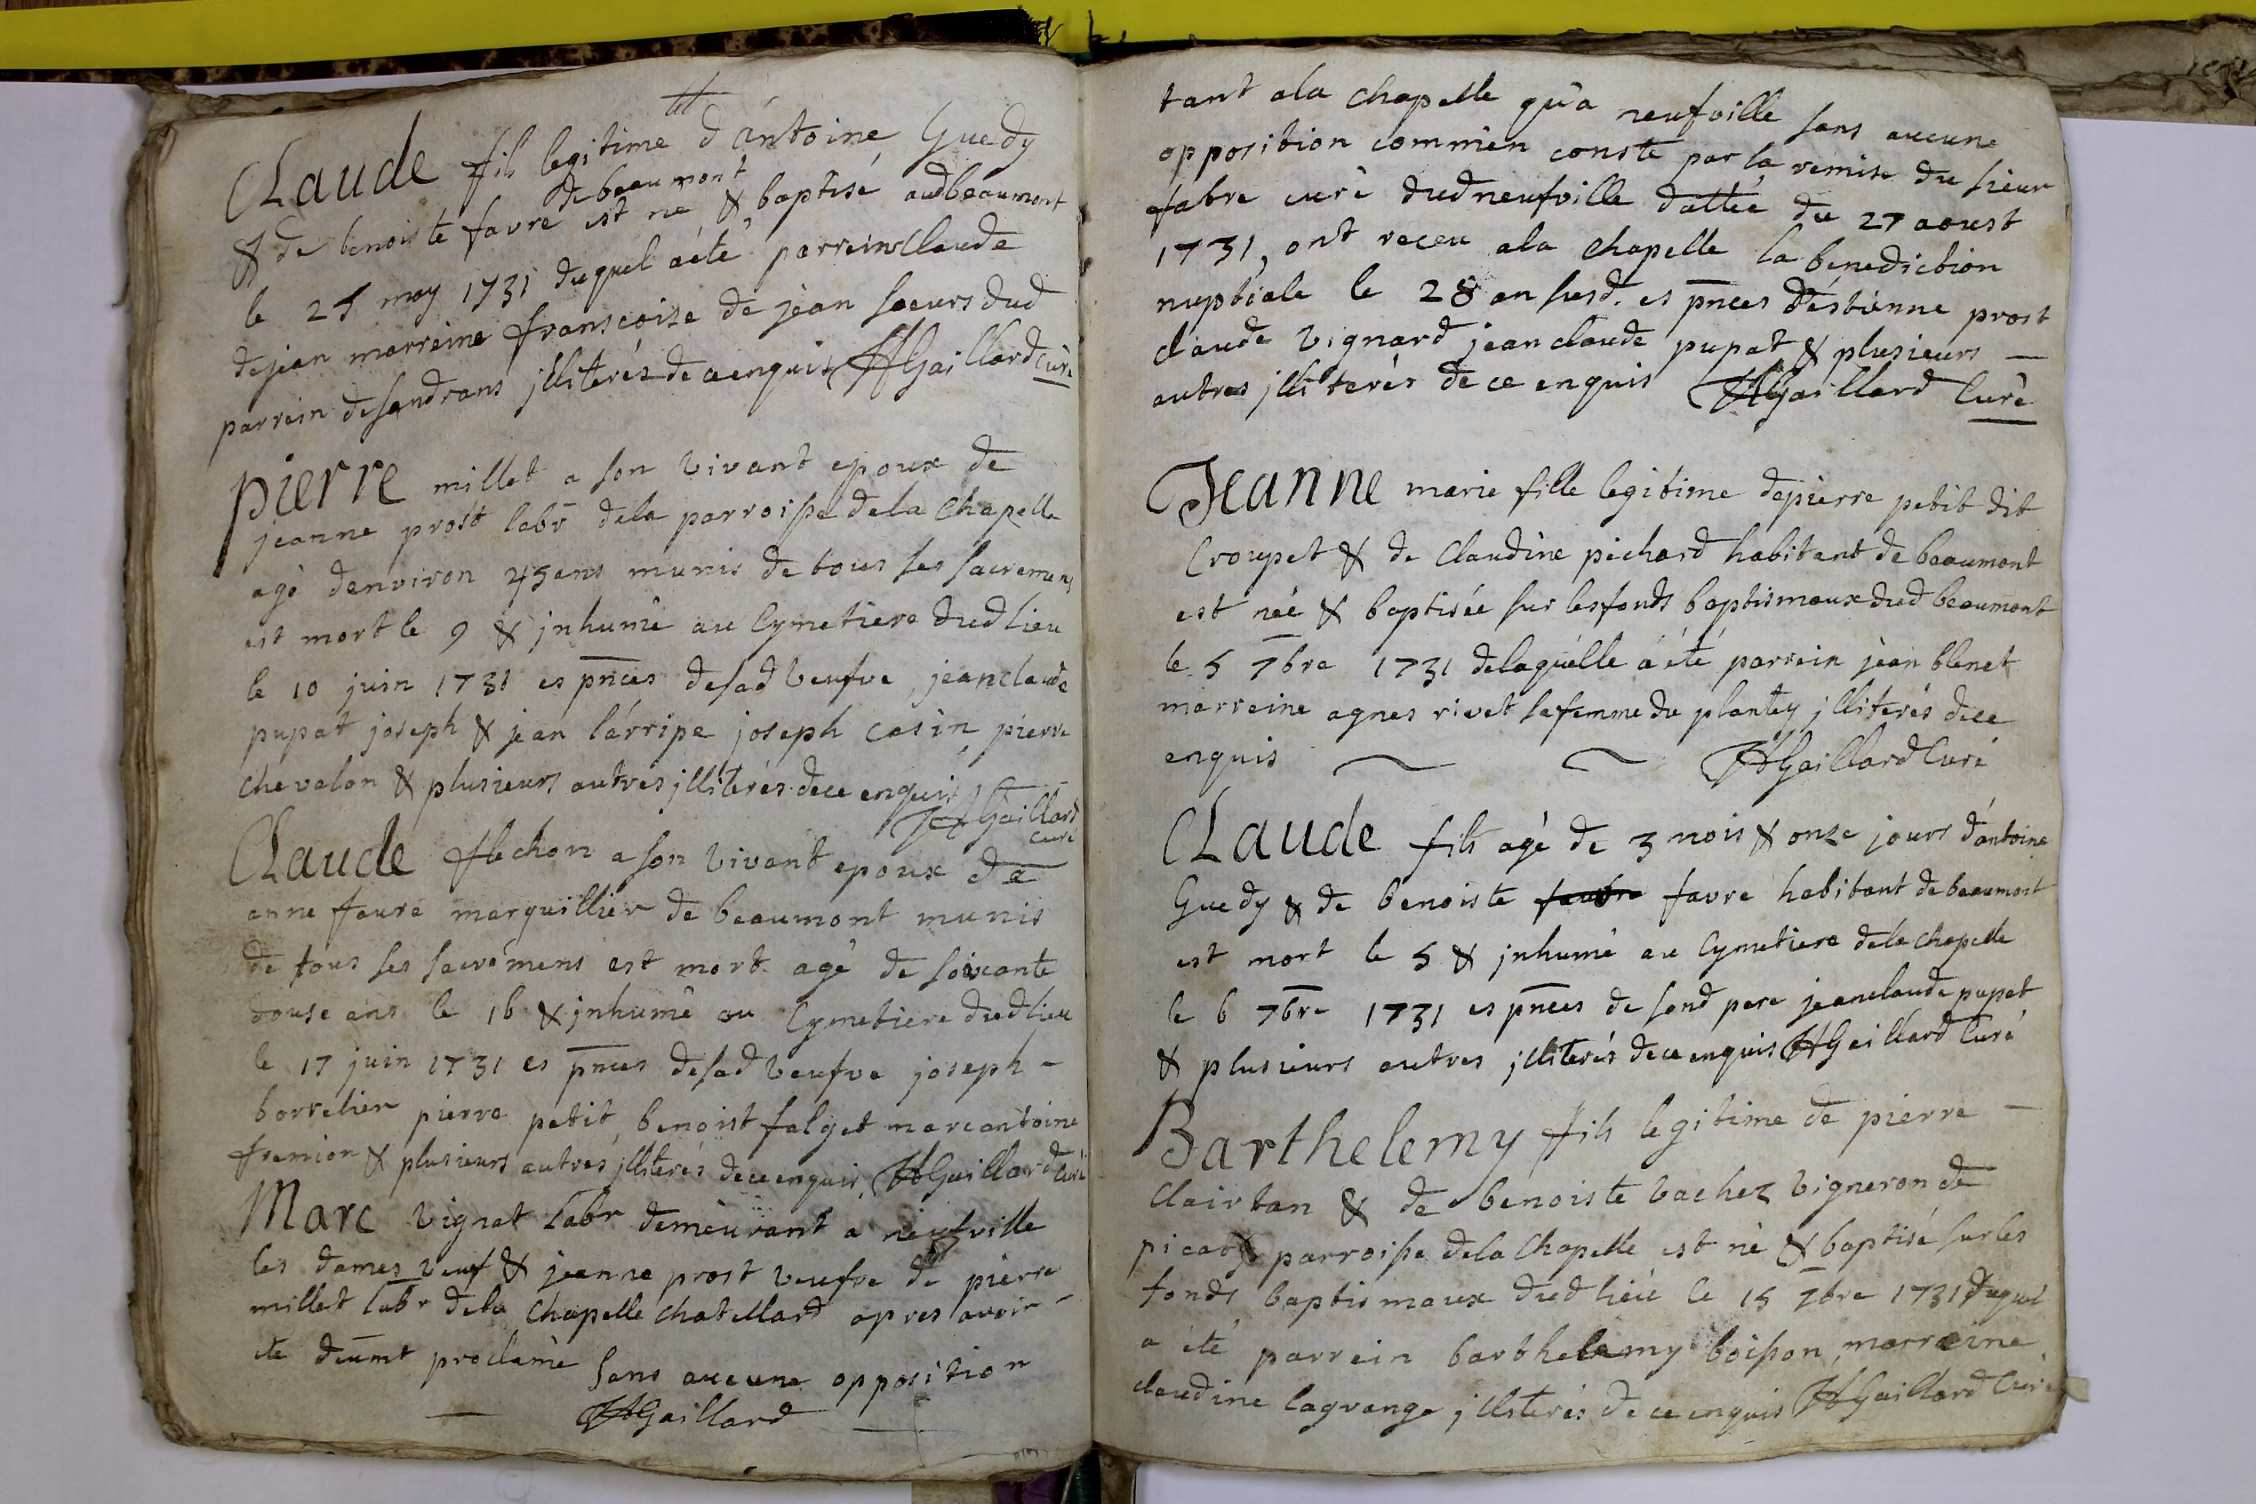 Claude fils legitime d'antoine Guedy
de beaumont
& de benoiste favre est né & baptisé aud beaumont
le 25 may 1731 duquel a été parrein Claude
de jean marreine franscoise de jean soeurs dud
parrein de sandrans jlliterés de ce enquis HGaillard Curé
pierre millet a son vivant epoux de
jeanne prost labr de la parroisse de la Chapelle
agé denviron 45 ans munis de tous ses sacremens
est mort le 9 & jnhumé au Cymetiere dud lieu
le 10 juin 1731 es pnces de sad veufve, jean claude
pupat joseph & jean larripe joseph casin, pierre
chevalon & plusieurs autres jlliterés de ce enquis
HGaillard
curé
Claude flechon a son vivant epoux de
anne faure marguillier de beaumont munis
de tous ses sacremens est mort agé de soixante
douse ans le 16 & jnhumé au Cymetiere dud lieu
le 17 juin 1731 es pnces de sad veufve joseph -
borrelier pierre petit, benoist falget marc antoine
fremion & plusieurs autres jlliterés de ce enquis, HGaillard Curé
Marc vignat labr demeurant a neufville
les dames veuf & jeanne prost veufve de pierre
millet labr de la Chapelle chatellard apres avoir
été deumt proclamé sans aucune opposition
HGaillard
tant a la chapelle qu'a neufville sans aucune
opposition comm'en conste par la remise du sieur
fabre curé dud neufville dattée du 27 aoust
1731, ont receu a la chapelle la benediction
nuptiale le 28 an susd. es pnces d'estienne prost
claude vignard jean claude pupat & plusieurs —
autres jlliterés de ce enquis HGaillard Curé
Jeanne marie fille legitime de pierre petit dit
Croupet & de Claudine pichard habitant de beaumont
est née & baptisée sur les fonds baptismaux dud beaumont
le 5 7bre 1731 de laquelle a été parrein jean blenet
marreine agnes rivet sa femme du plantey jlliterés de ce
enquis HGaillard Curé
Claude fils agé de 3 mois & onze jours d'antoine
Guedy & de benoiste favre habitant de beaumont
est mort le 5 & jnhumé au Cymetiere de la chapelle
le 6 7bre 1731 es pnces de sond pere jean claude pupat
& plusieurs autres jlliterés de ce enquis HGaillard Curé
Barthelemy fils legitime de pierre —
Clairtan & de benoiste vachez vigneron de
parroisse de la Chapelle est né & baptisé sur les
fonds baptismaux dud lieu le 15 7bre 1731 duquel
a été parrein barthelemy boisson, marreine
claudine lagrange jlliterés de ce enquis HGaillard Curé